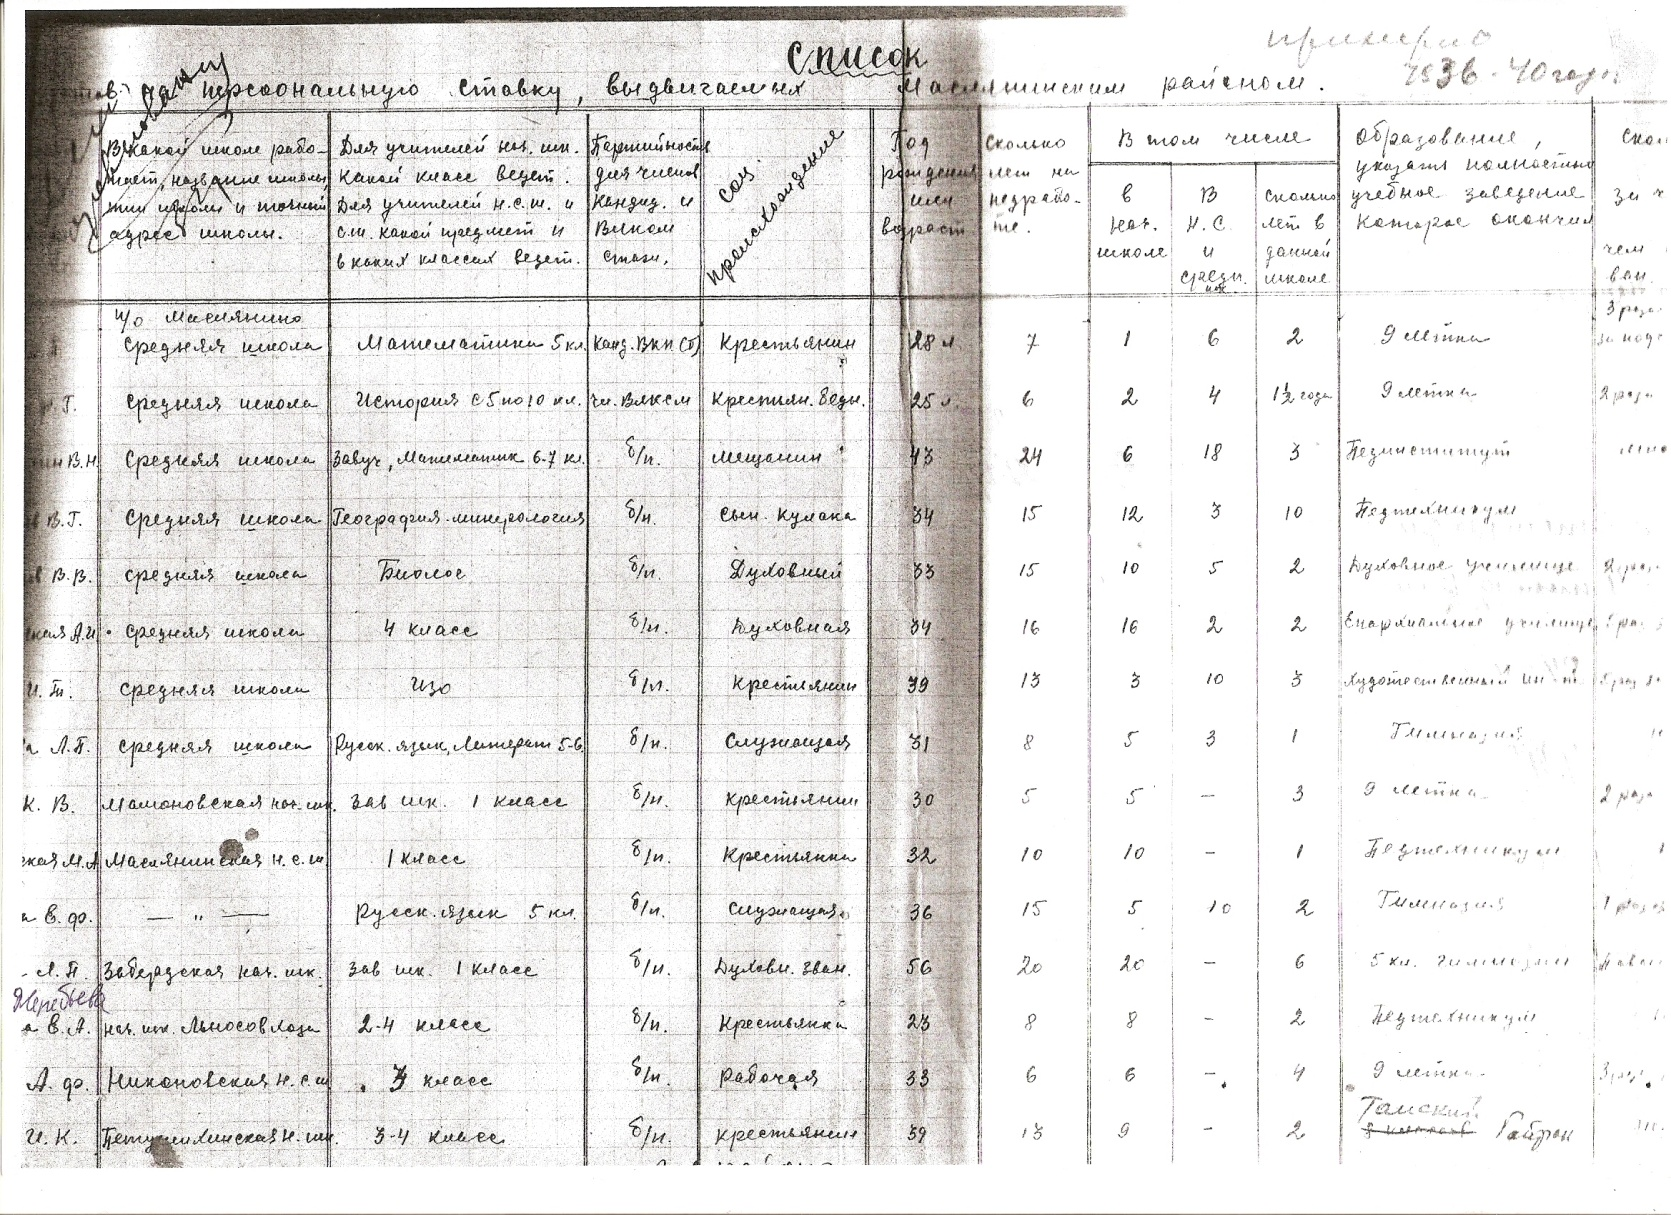 Список
примерно
1936-40 годы
на персональную ставку, выдвигаемых Маслянинским районом.
В какой школе рабо-
тает, название школы
тип школы и точный
адрес школы.
Для учителей нач. шк.
какой класс ведет.
Для учителей н.с.ш. и
с.ш. какой предмет и
в каких классах ведет.
Партийность
для членов
кандид. и
ВЛКСМ
стаж.
соц.
происхождение
Год
рождения
или
возраст
Сколько
лет на
педрабо-
те.
В том числе
в
нач.
школе
В
н.с.
и
средн.
шк.
сколько
лет в
данной
школе
Образование,
указать полностью
учебное заведение
которое окончил
за
чем
с/о Маслянино
средняя школа Математика 5 кл. Канд. ВКП(б) Крестьянин 28 л 7 1 6 2 9 летка 3 раза
Г. Средняя школа История с 5 по 10 кл. чл. ВЛКСМ Крестьян. бедн. 25 л. 6 2 4 1½ года 9 летка 2 раза
В.Н. Средняя школа Завуч, Математик 6-7 кл. б/п. Мещанин 43 24 6 18 3 Пединститут
В.Г. Средняя школа География-минерология б/п. сын. кулака 34 15 12 3 10 Педтехникум
В.В. средняя школа Биолог б/п. Духовный 33 15 10 5 2 Духовное училище 2 раза
ская А.И. средняя школа 4 класс б/п. Духовная 34 16 16 2 2 Епархиальное училище
И.Т. средняя школа ИЗО б/п. Крестьянин 39 13 3 10 3 Художественный ин-т
а Л.П. средняя школа Русск. язык, Литерат 5-6. б/п. Служащая 31 8 5 3 1 Гимназия
К. В. Мамоновская нач. шк. Зав шк. 1 класс б/п. крестьянин 30 5 5 – 3 9 летка 2 раза
ская М.А Маслянинская н.с.ш 1 класс б/п. Крестьянка 32 10 10 – 1 Педтехникум
а Е. Ф. — " — Русск. язык 5 кл. б/п. Служащая 36 15 5 10 2 Гимназия
Л.П. Забердская нач. шк. Зав шк. 1 класс б/п. Духовн. зван. 56 20 20 – 6 5 кл. гимназии
Жеребьева
а Е.А. нач. шк. Льносовхоза 2-4 класс б/п. Крестьянка 23 8 8 – 2 Педтехникум
А. Ф. Никоновская н.с.ш класс б/п. рабочая 33 6 6 – 4 9 летка
И. К. Петушихинская н. шк. 3-4 класс б/п. крестьянин 39 13 9 – 2
Томский